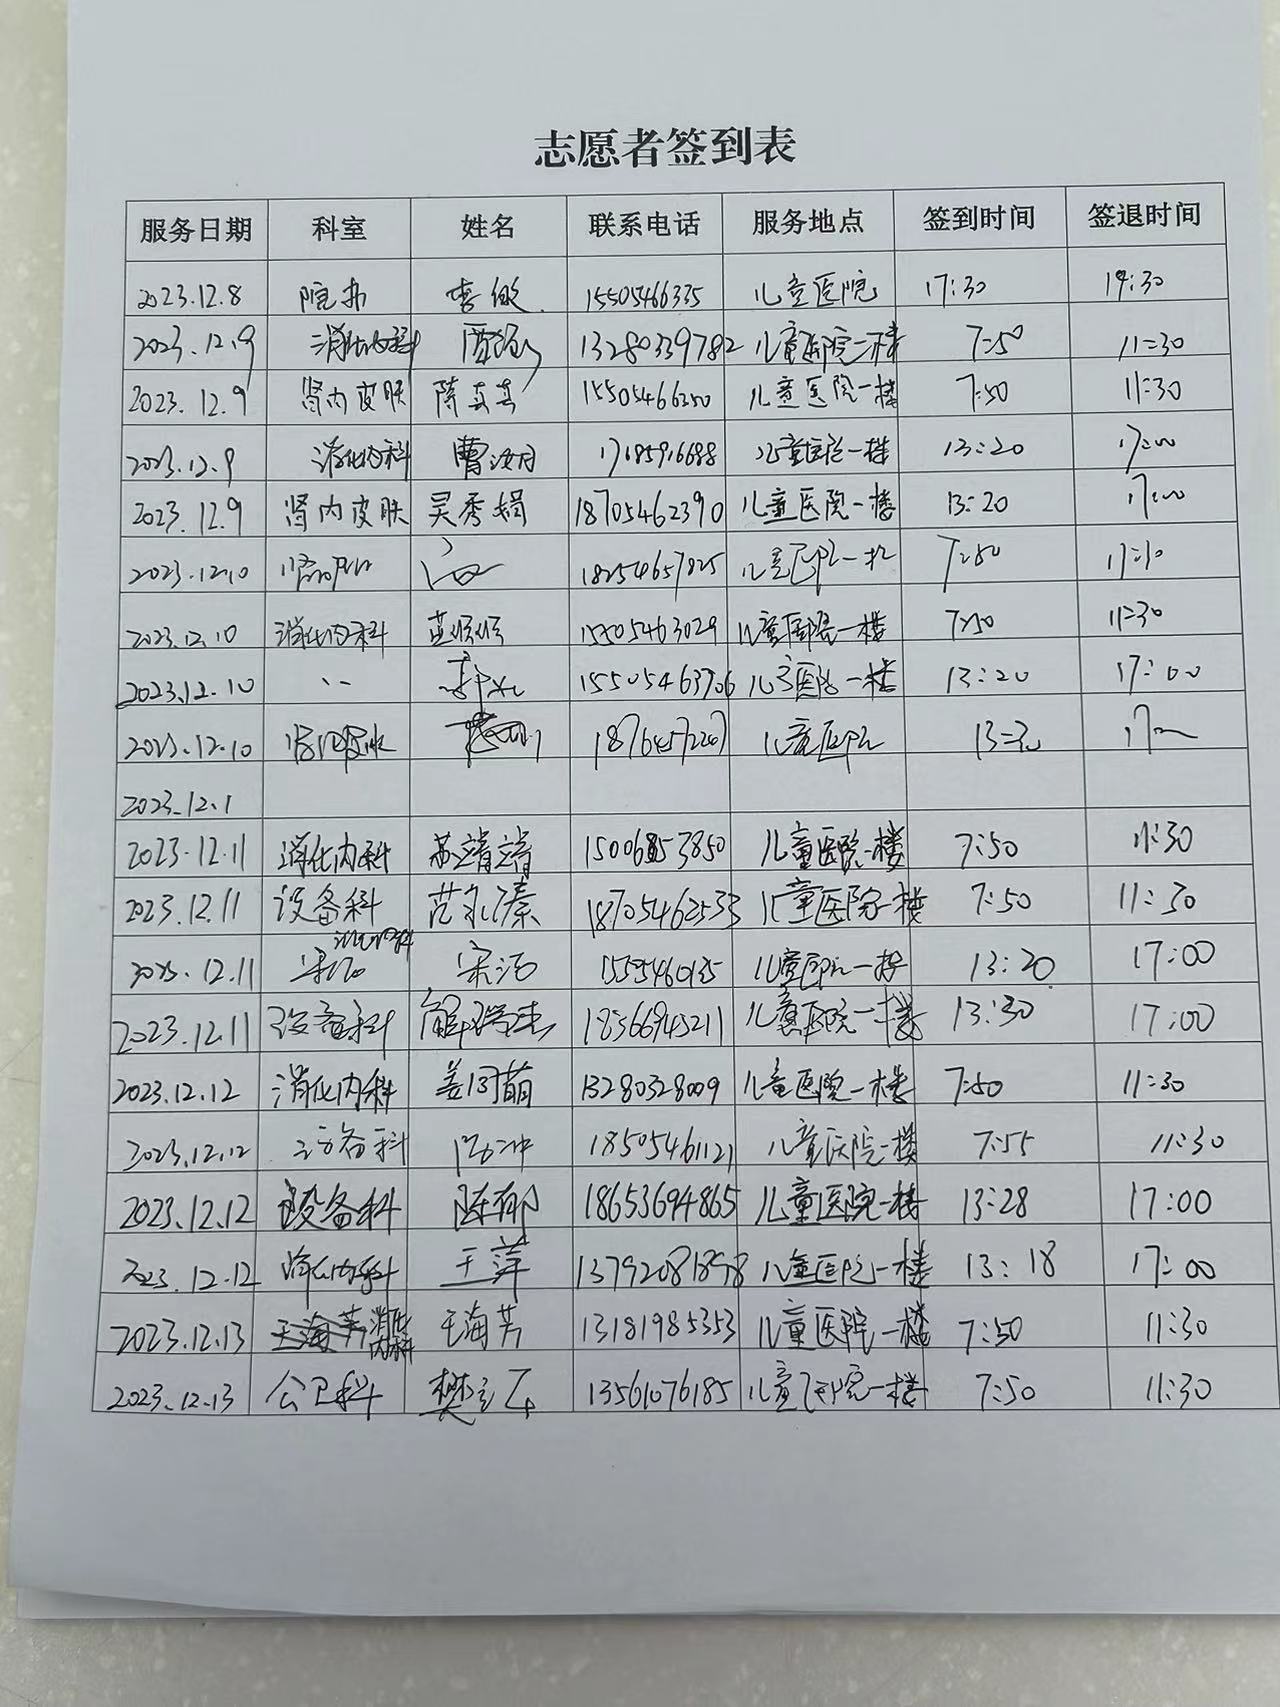 志愿者签到表
服务日期 科室 姓名 联系电话 服务地点 签到时间 签退时间
2023.12.8 院办 李敏 15505466335 儿童医院 17:30 19:30
2023.12.9 消化内科 13280339782 儿童医院一楼 7:50 11:30
2023.12.9 肾内皮肤 陈真真 15505466350 儿童医院一楼 7:50 11:30
2023.12.9 消化内科 曹汝月 17185916688 儿童医院一楼 13:20 17:00
2023.12.9 肾内皮肤 吴秀娟 18705462390 儿童医院一楼 13:20 17:00
2023.12.10 18254657825 7:50
2023.12.10 消化内科 15505463029 儿童医院一楼 7:50 11:30
2023.12.10 15505463706 儿童医院一楼 13:20 17:00
2023.12.10 肾内皮肤 儿童医院
2023.12.1
2023.12.11 消化内科 苏靖靖 15006853850 儿童医院一楼 7:50 11:30
2023.12.11 设备科 范永溱 18705462533 儿童医院一楼 7:50 11:30
2023.12.11 消化内科 宋洁 儿童医院一楼 13:20 17:00
2023.12.11 设备科 解瑞杰 18366943211 儿童医院一楼 13:30 17:00
2023.12.12 消化内科 姜同萌 13280328009 儿童医院一楼 7:50 11:30
2023.12.12 设备科 18505461121 儿童医院一楼 7:55 11:30
2023.12.12 设备科 陈郁 18653694865 儿童医院一楼 13:28 17:00
2023.12.12 消化内科 王萍 13792081898 儿童医院一楼 13:18 17:00
2023.12.13 消化内科 王海芳 13181985353 儿童医院一楼 7:50 11:30
2023.12.13 公卫科 樊立石 13561076185 儿童医院一楼 7:50 11:30